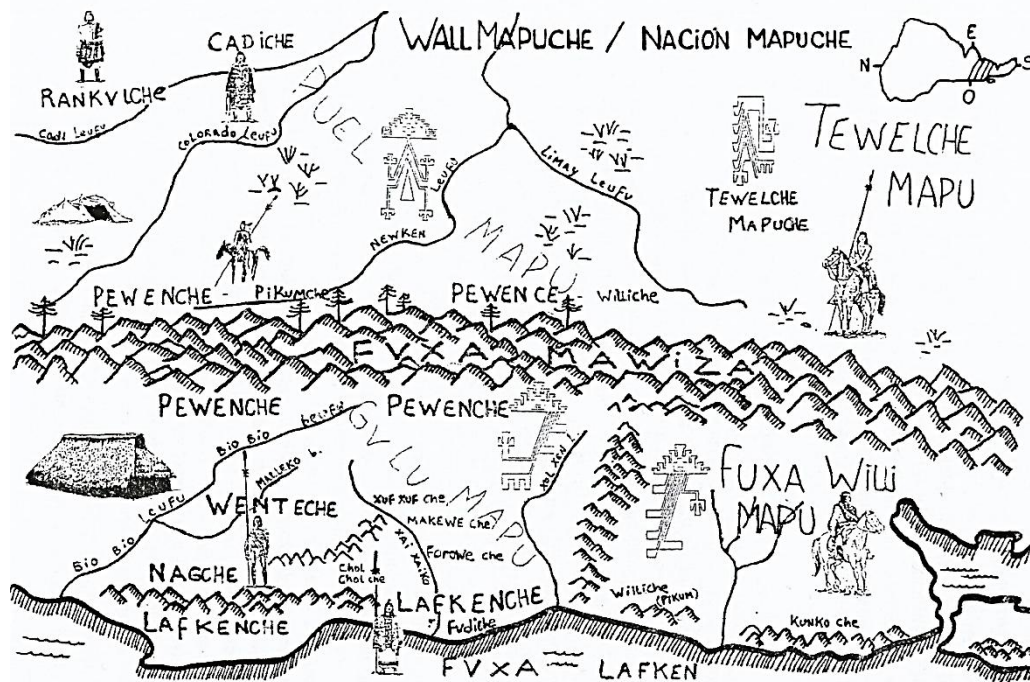 WALLMAPUCHE / NACIÓN MAPUCHE
E
N
S
O
RANKVLCHE
CADICHE
CADI LEUFU
COLORADO LEUFU
PUEL
MAPU
NEWKEN LEUFU
LIMAY LEUFU
TEWELCHE
MAPUCHE
TEWELCHE
MAPU
PEWENCHE - PIKUMCHE
PEWENCE - WILLICHE
FVXA MAWIZA
PEWENCHE
PEWENCHE
GVLU MAPU
BIO BIO LEUFU BIO BIO LEUFU
MALLEKO b.
WENTECHE
NAGCHE
LAFKENCHE
XUF XUF CHE
MAKEWE CHE
FOROWE CHE
XAI XAIKO
CHOL
CHOL CHE
LAFKENCHE
FUDICHE
XOL XEN L
FUXA WILLI
MAPU
WILLICHE
(PIKUM)
KUNKO CHE
FVXA LAFKEN